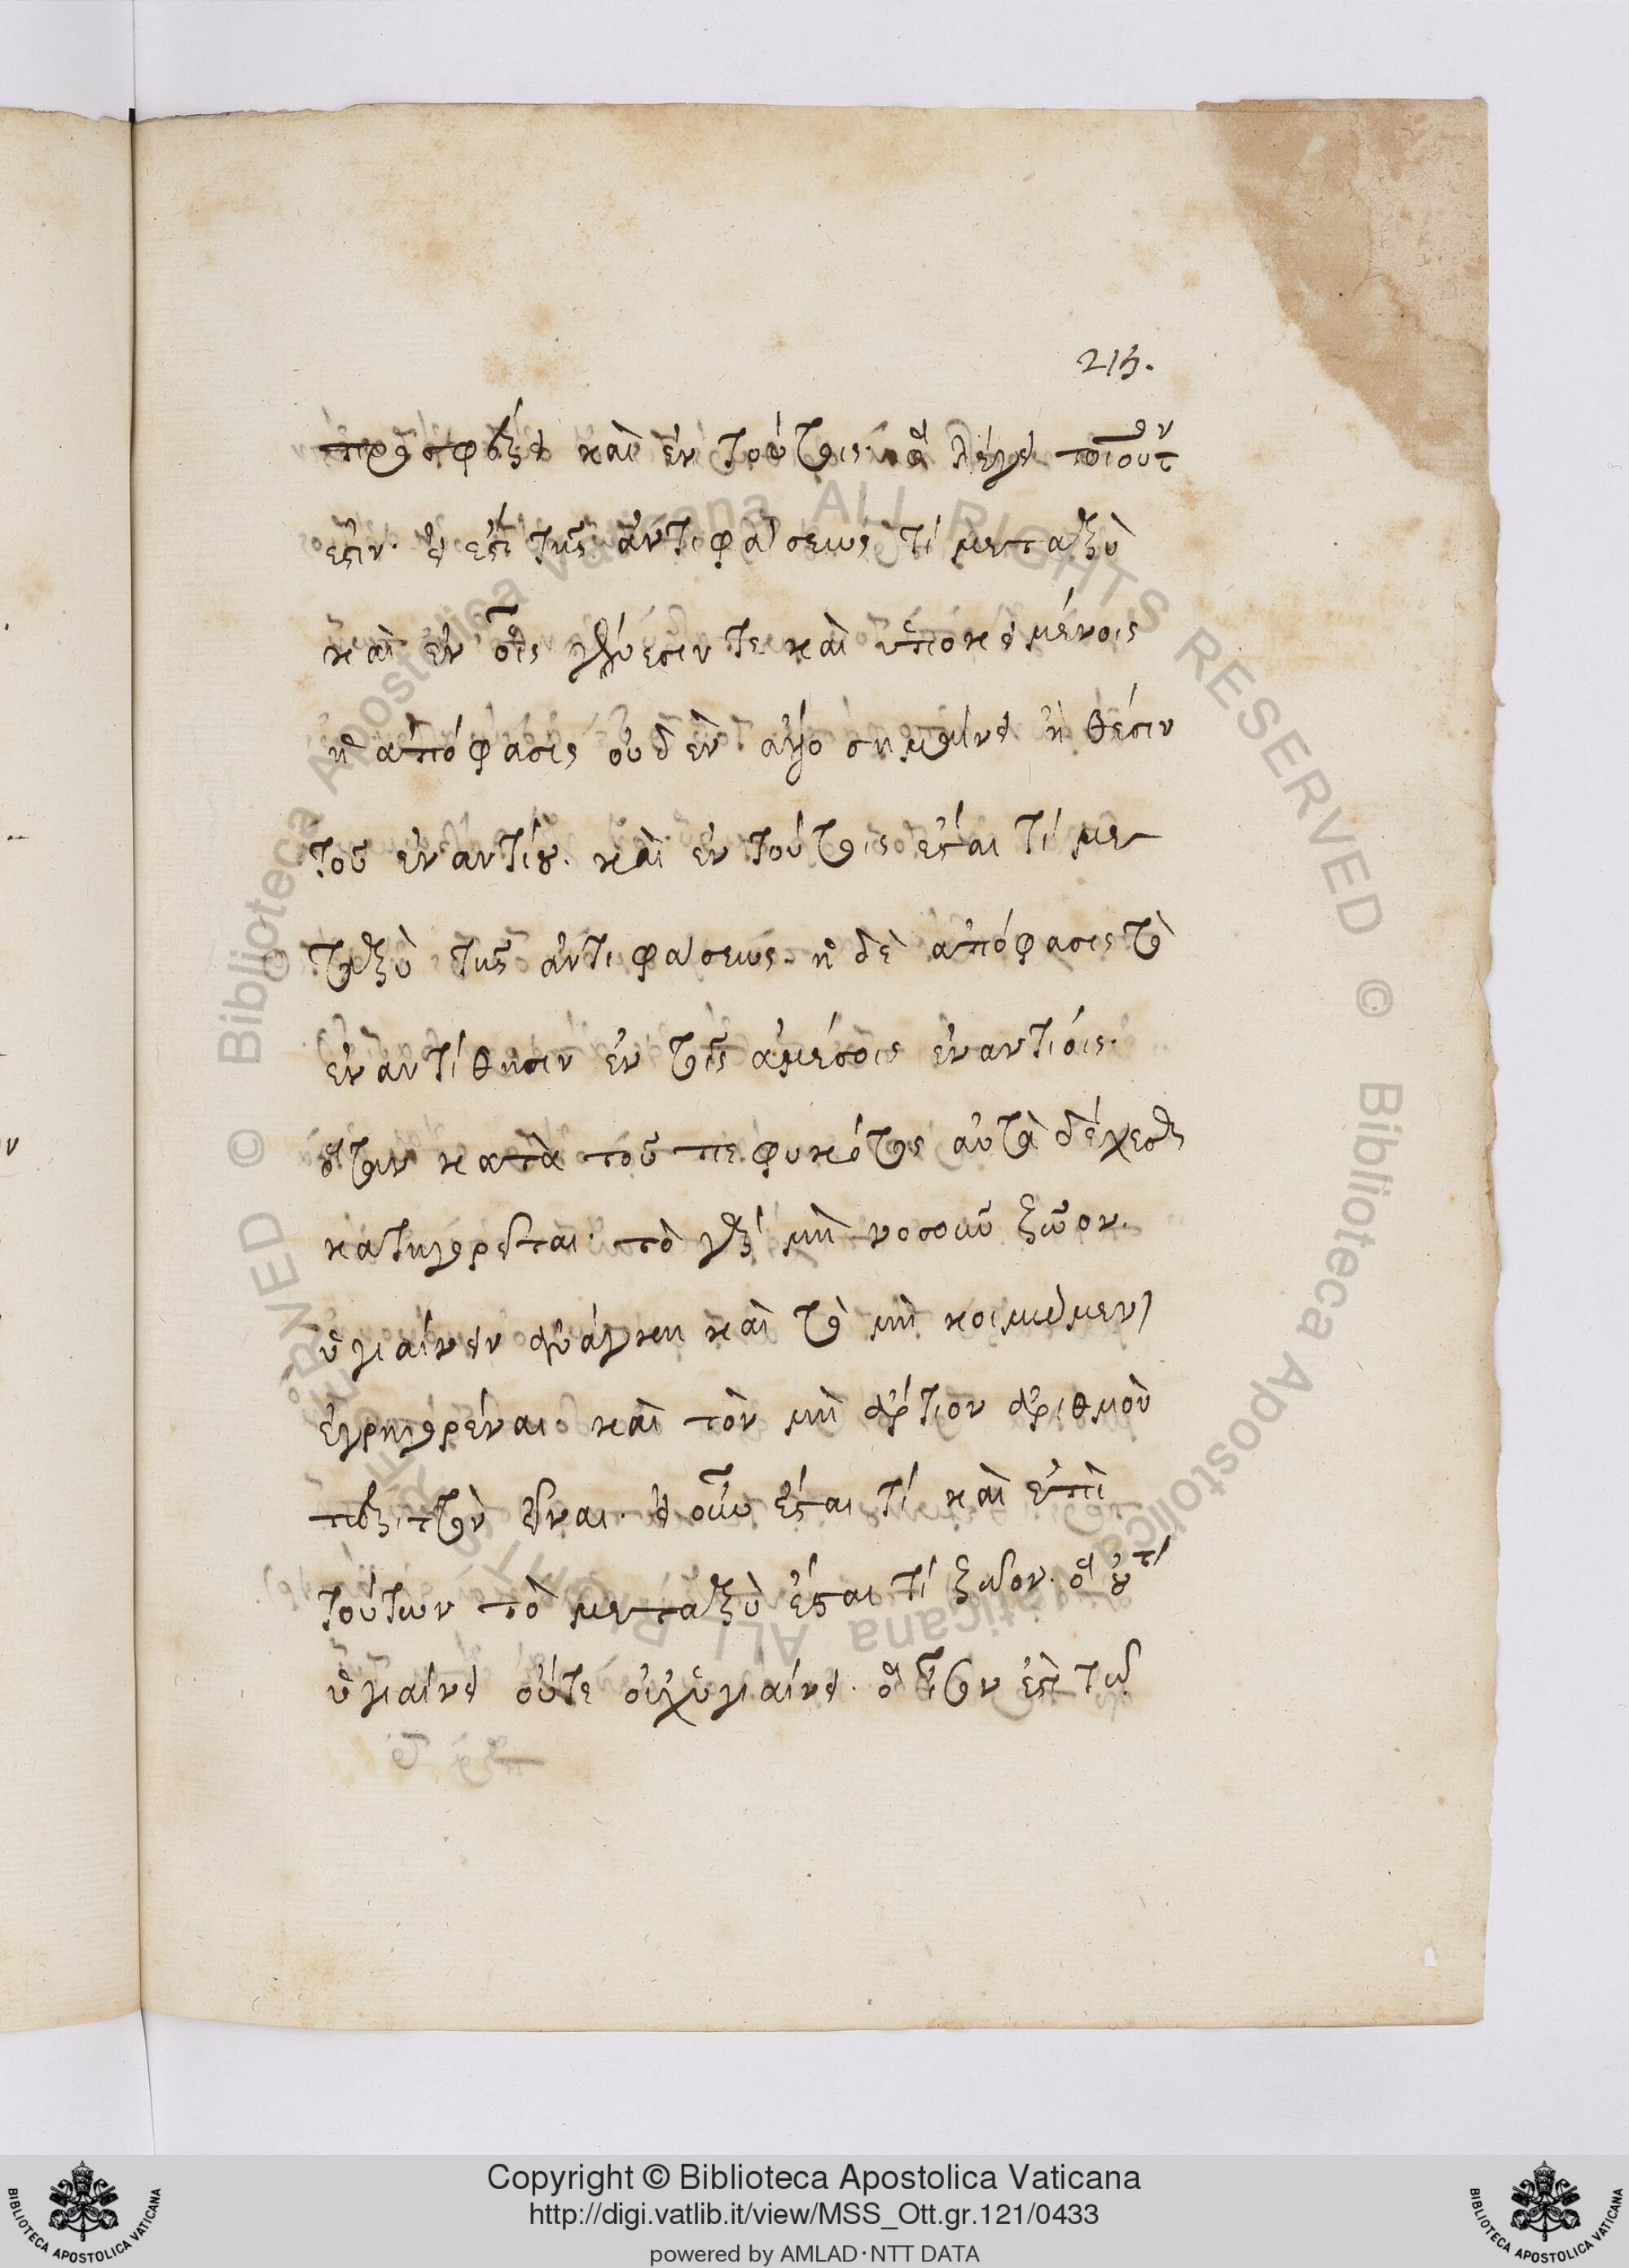 213.
προστάξει καὶ ἐν τούτοις. ὃ λέγει τοιοῦτον
ἐστιν. εἰ ἔστι τῆς ἀντιφάσεως τί μεταξὺ
καὶ ἐν οἷς γένεσιν τε καὶ ὑποκειμένοις
ἡ ἀπόφασις οὐδὲν ἄλλο σημαίνει ἢ θέσιν
τοῦ ἐναντίου. καὶ ἐν τούτοις ἔσται τί με
ταξὺ τῆς ἀντιφάσεως. ἡ δὲ ἀπόφασις τὸ
ἐναντίθησιν ἐν τοῖς ἀμέσοις ἐναντίοις.
ὅταν κατὰ τοῦ πεφυκότος αὐτὰ δέχεσθαι
κατηγορεῖται. τὸ γὰρ μὴ νοσοῦν ζῶον.
ὑγιαίνειν ἀνάγκη καὶ τὸ μὴ κοιμώμενον
ἐγρηγορέναι καὶ τὸν μὴ ἄρτιον ἀριθμὸν
περιττὸν εἶναι. εἰ οὖν ἔσται τί καὶ ἐπὶ
τούτων τὸ μεταξὺ ἔσται τί ζῶον. ὃ οὔτε
ὑγιαίνει οὔτε οὐχ ὑγιαίνει. ὃ ἐπὶ τῶ
Copyright © Biblioteca Apostolica Vaticana
http://digi.vatlib.it/view/MSS_Ott.gr.121/0433
powered by AMLAD·NTT DATA
BIBLIOTECA APOSTOLICA VATICANA
BIBLIOTECA APOSTOLICA VATICANA
© Biblioteca Apostolica Vaticana ALL RIGHTS RESERVED © Biblioteca Apostolica Vaticana ALL RIGHTS RESERVED